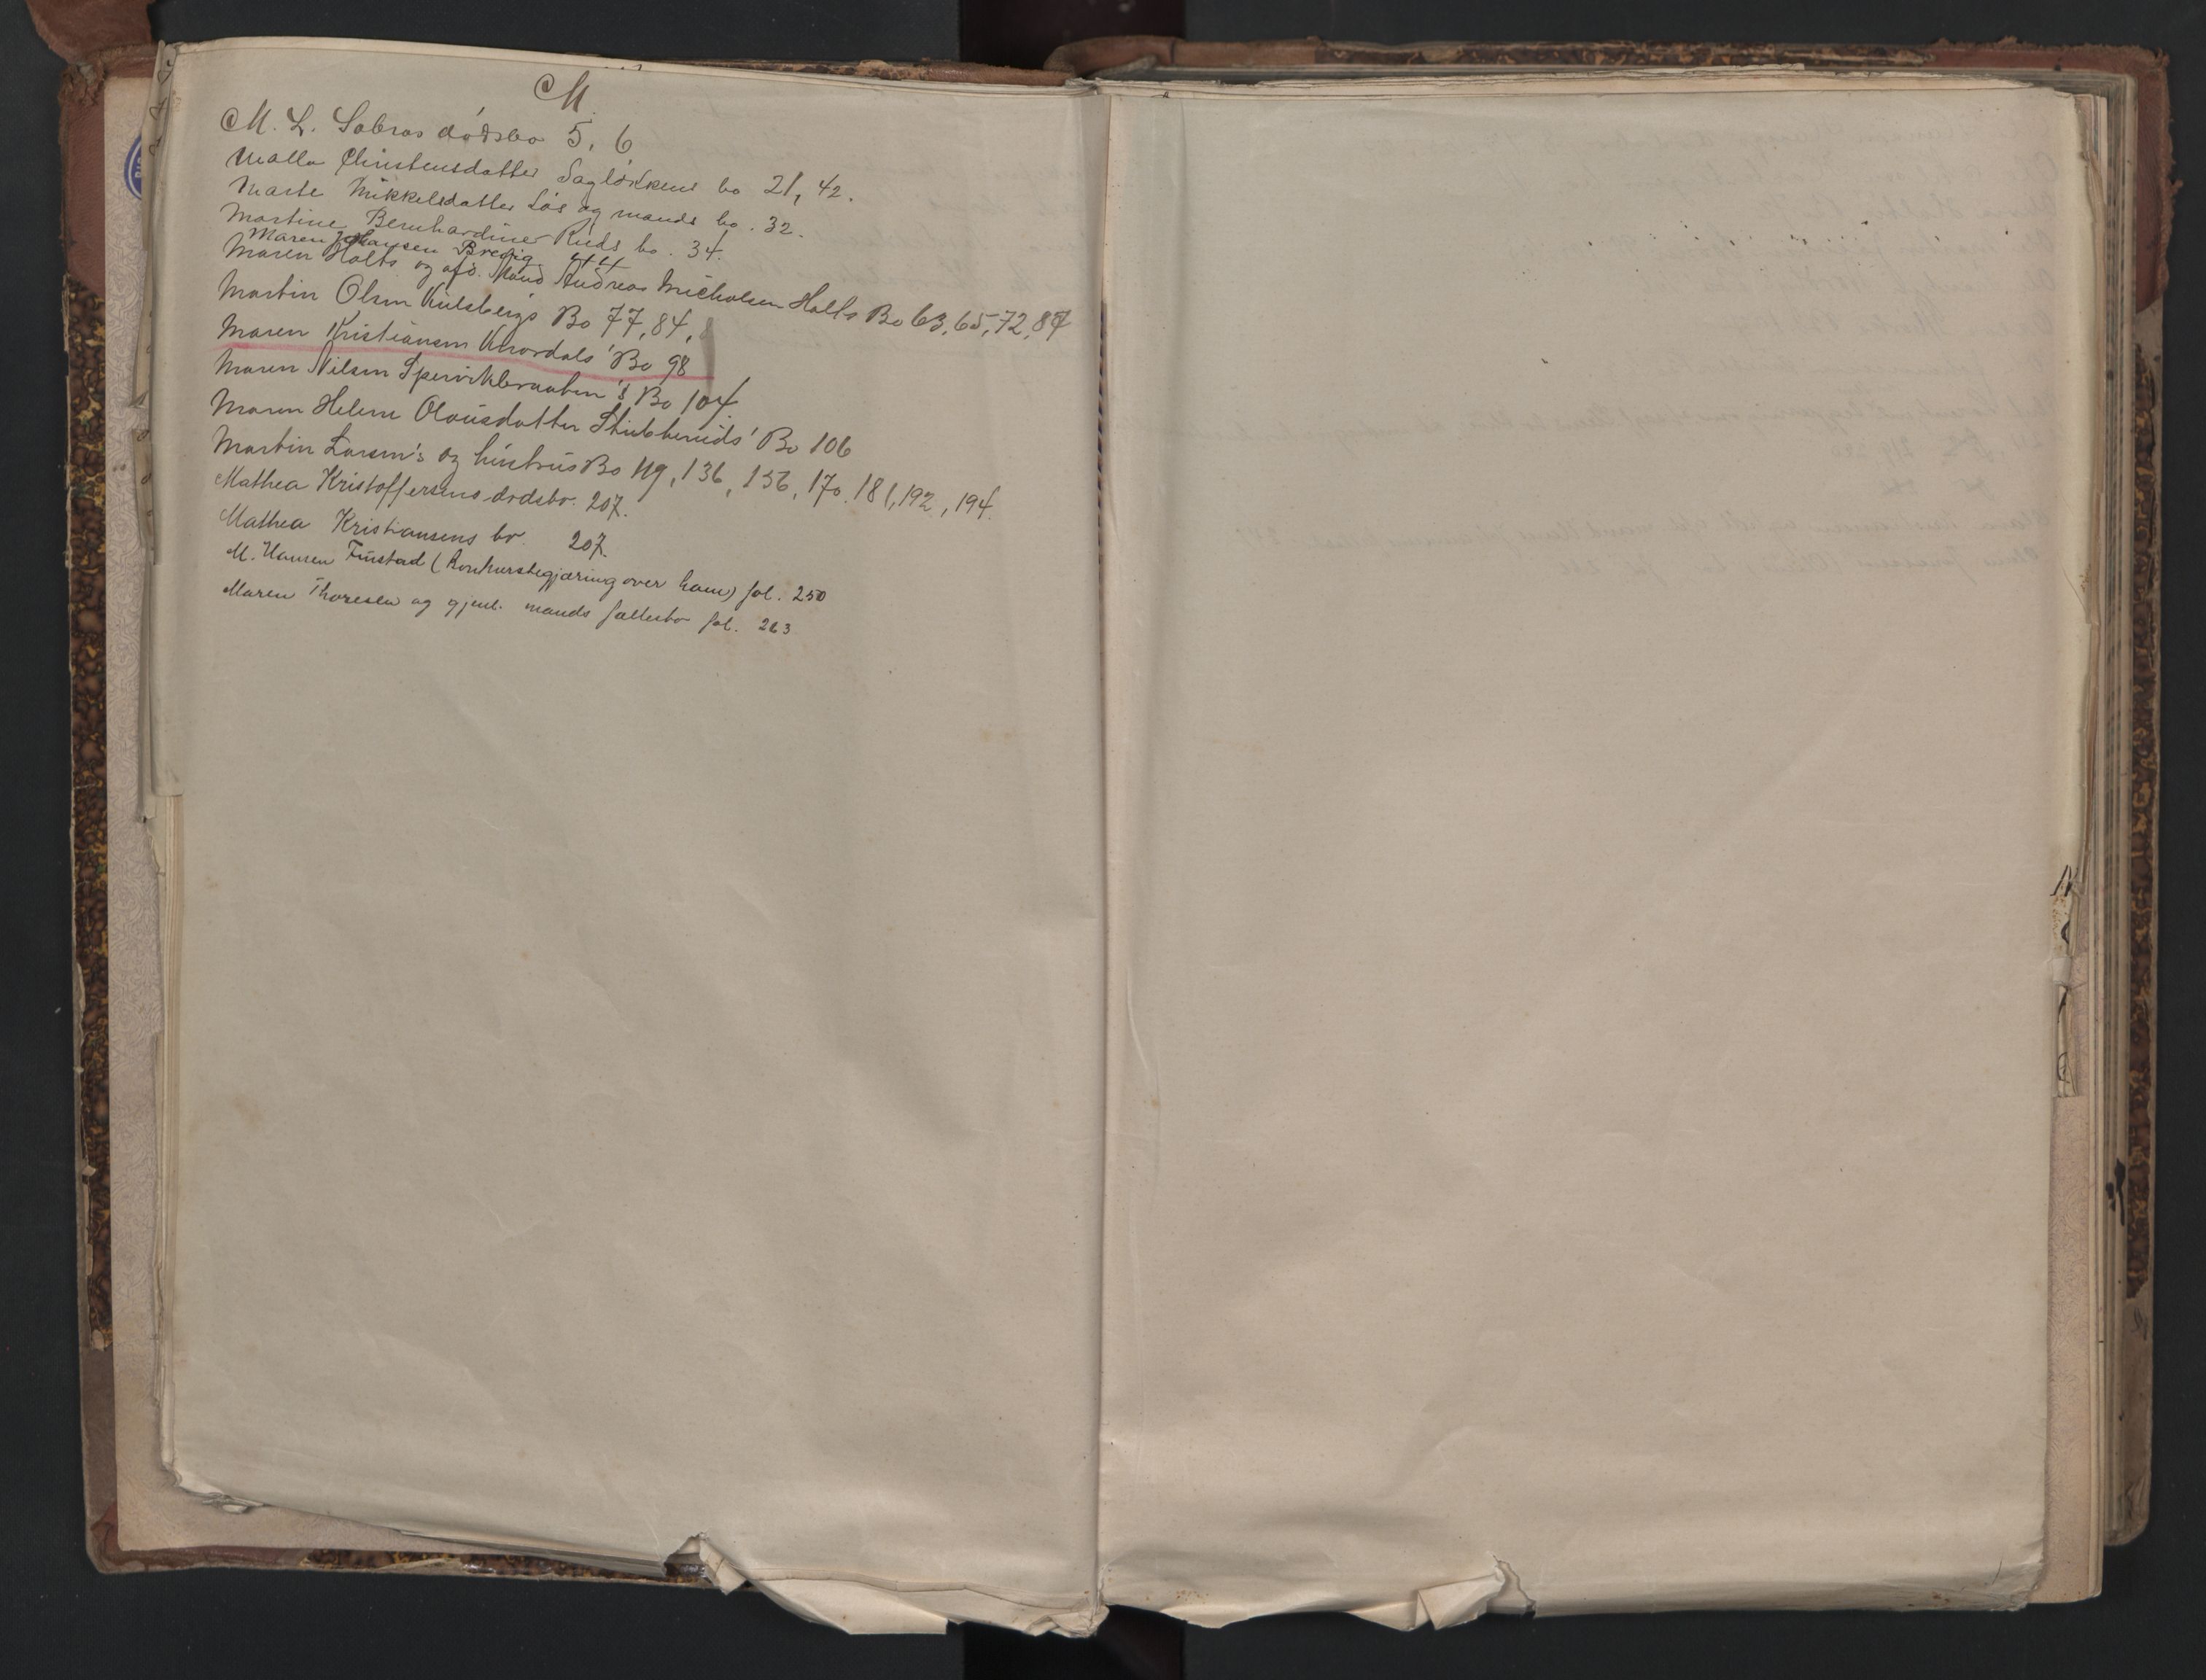 M.
M. L. Sabros dødsbo 5, 6
Malla Christensdatter Sagløkkens bo 21, 42.
Marte Mikkelsdatter Løs og mands bo. 32.
Martine Bernhardine Ruds bo. 34.
Maren Johansen Brevig 44
Maren Holts og afd. Mand Andreas Micholsen Holts Bo 63, 65, 72, 87
Martin Olsen Kulsbergs Bo 77, 84,
Maren Kristiansen Knordals' Bo 98
Maren Nilsen Spervikbraaten's Bo 104
Maren Helene Olausdatter Stubberuds' Bo 106
Martin Larsen's og hustrus Bo 119, 136, 156, 170, 181, 192, 194.
Mathea Kristoffersens dødsbo. 207.
Mathea Kristiansens bo. 207.
M. Hansen Finstad (Konkursbegjæring over ham) fol. 250
Maren Thoresen og gjenl. mands fællesbo fol. 263